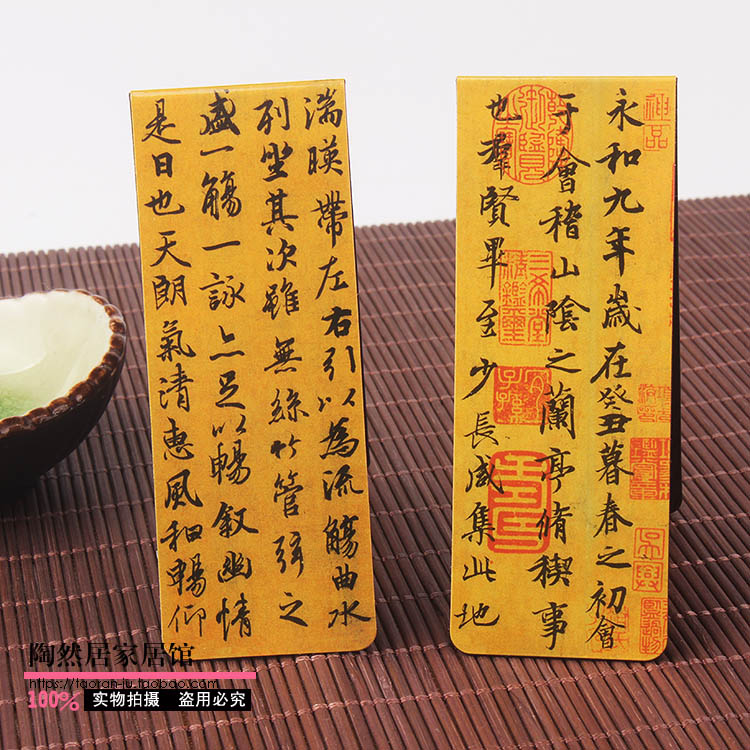 永和九年歲在癸丑暮春之初會
于會稽山陰之蘭亭脩稧事
也羣賢畢至少長咸集此地
神品
三希堂
精鑑璽
宜子孫
湍暎帶左右引以為流觴曲水
列坐其次雖無絲竹管弦之
盛一觴一詠亦足以暢敘幽情
是日也天朗氣清惠風和暢仰
陶然居家居馆
https://taoran-ju.taobao.com
100% 实物拍摄 盗用必究